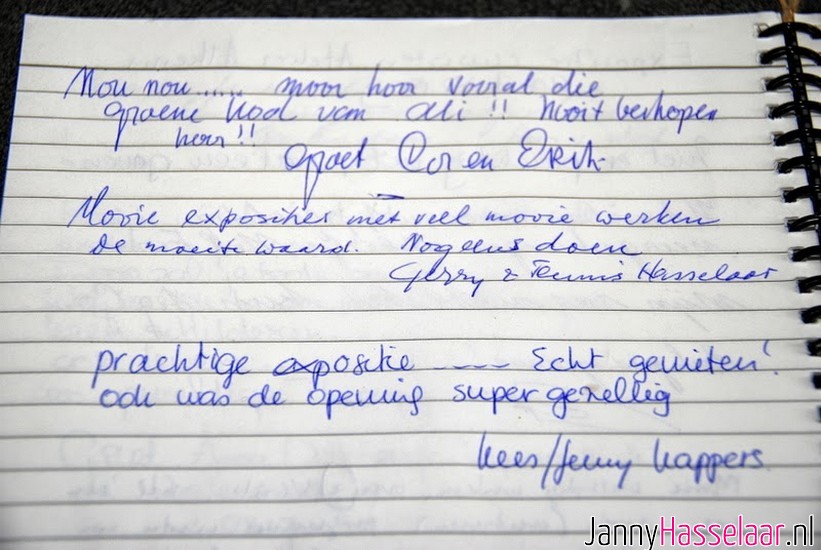 Nou nou...... mooi hoor vooral die
groene kool van Ali !! Nooit verkopen
hoor!!
Groet Cor en Erik
Mooie exposities met veel mooie werken
De moeite waard. Nog eens doen
Gerry & Teunis Hasselaar
prachtige expositie ---- Echt genieten!
ook was de opening super gezellig
kees/Jenny kappers
JannyHasselaar.nl